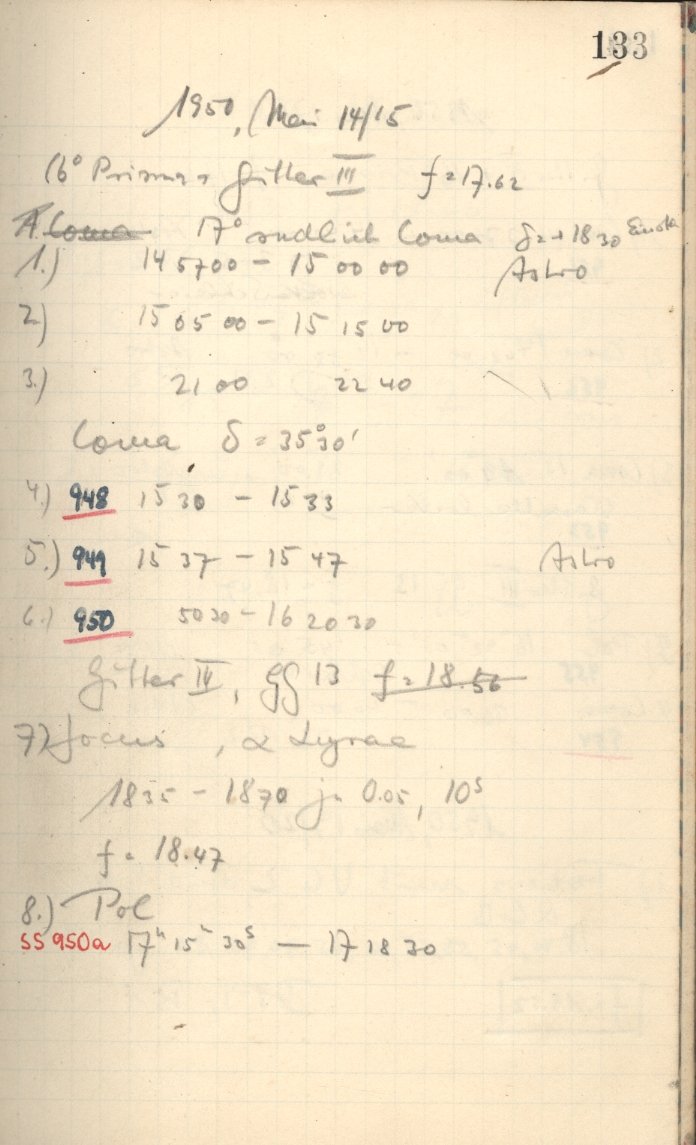 133
1950, Mai 14/15
6° Prisma + Gitter III f=17.62
A Coma 17° südlich Coma δ=+18 30
1.) 14 57 00 - 15 00 00 Astro
2) 15 05 00 - 15 15 00
3.) 21 00 22 40
Coma δ = 35°30'
4.) 948 15 30 - 15 33
5.) 949 15 37 - 15 47 Astro
6.) 950 50 30 - 16 20 30
Gitter III, GG 13 f=18.56
7) Focus, α Lyrae
1835 - 1870 je 0.05, 10s
f = 18.47
8.) Pol
SS 950a 17h 15m 30s — 17 18 30